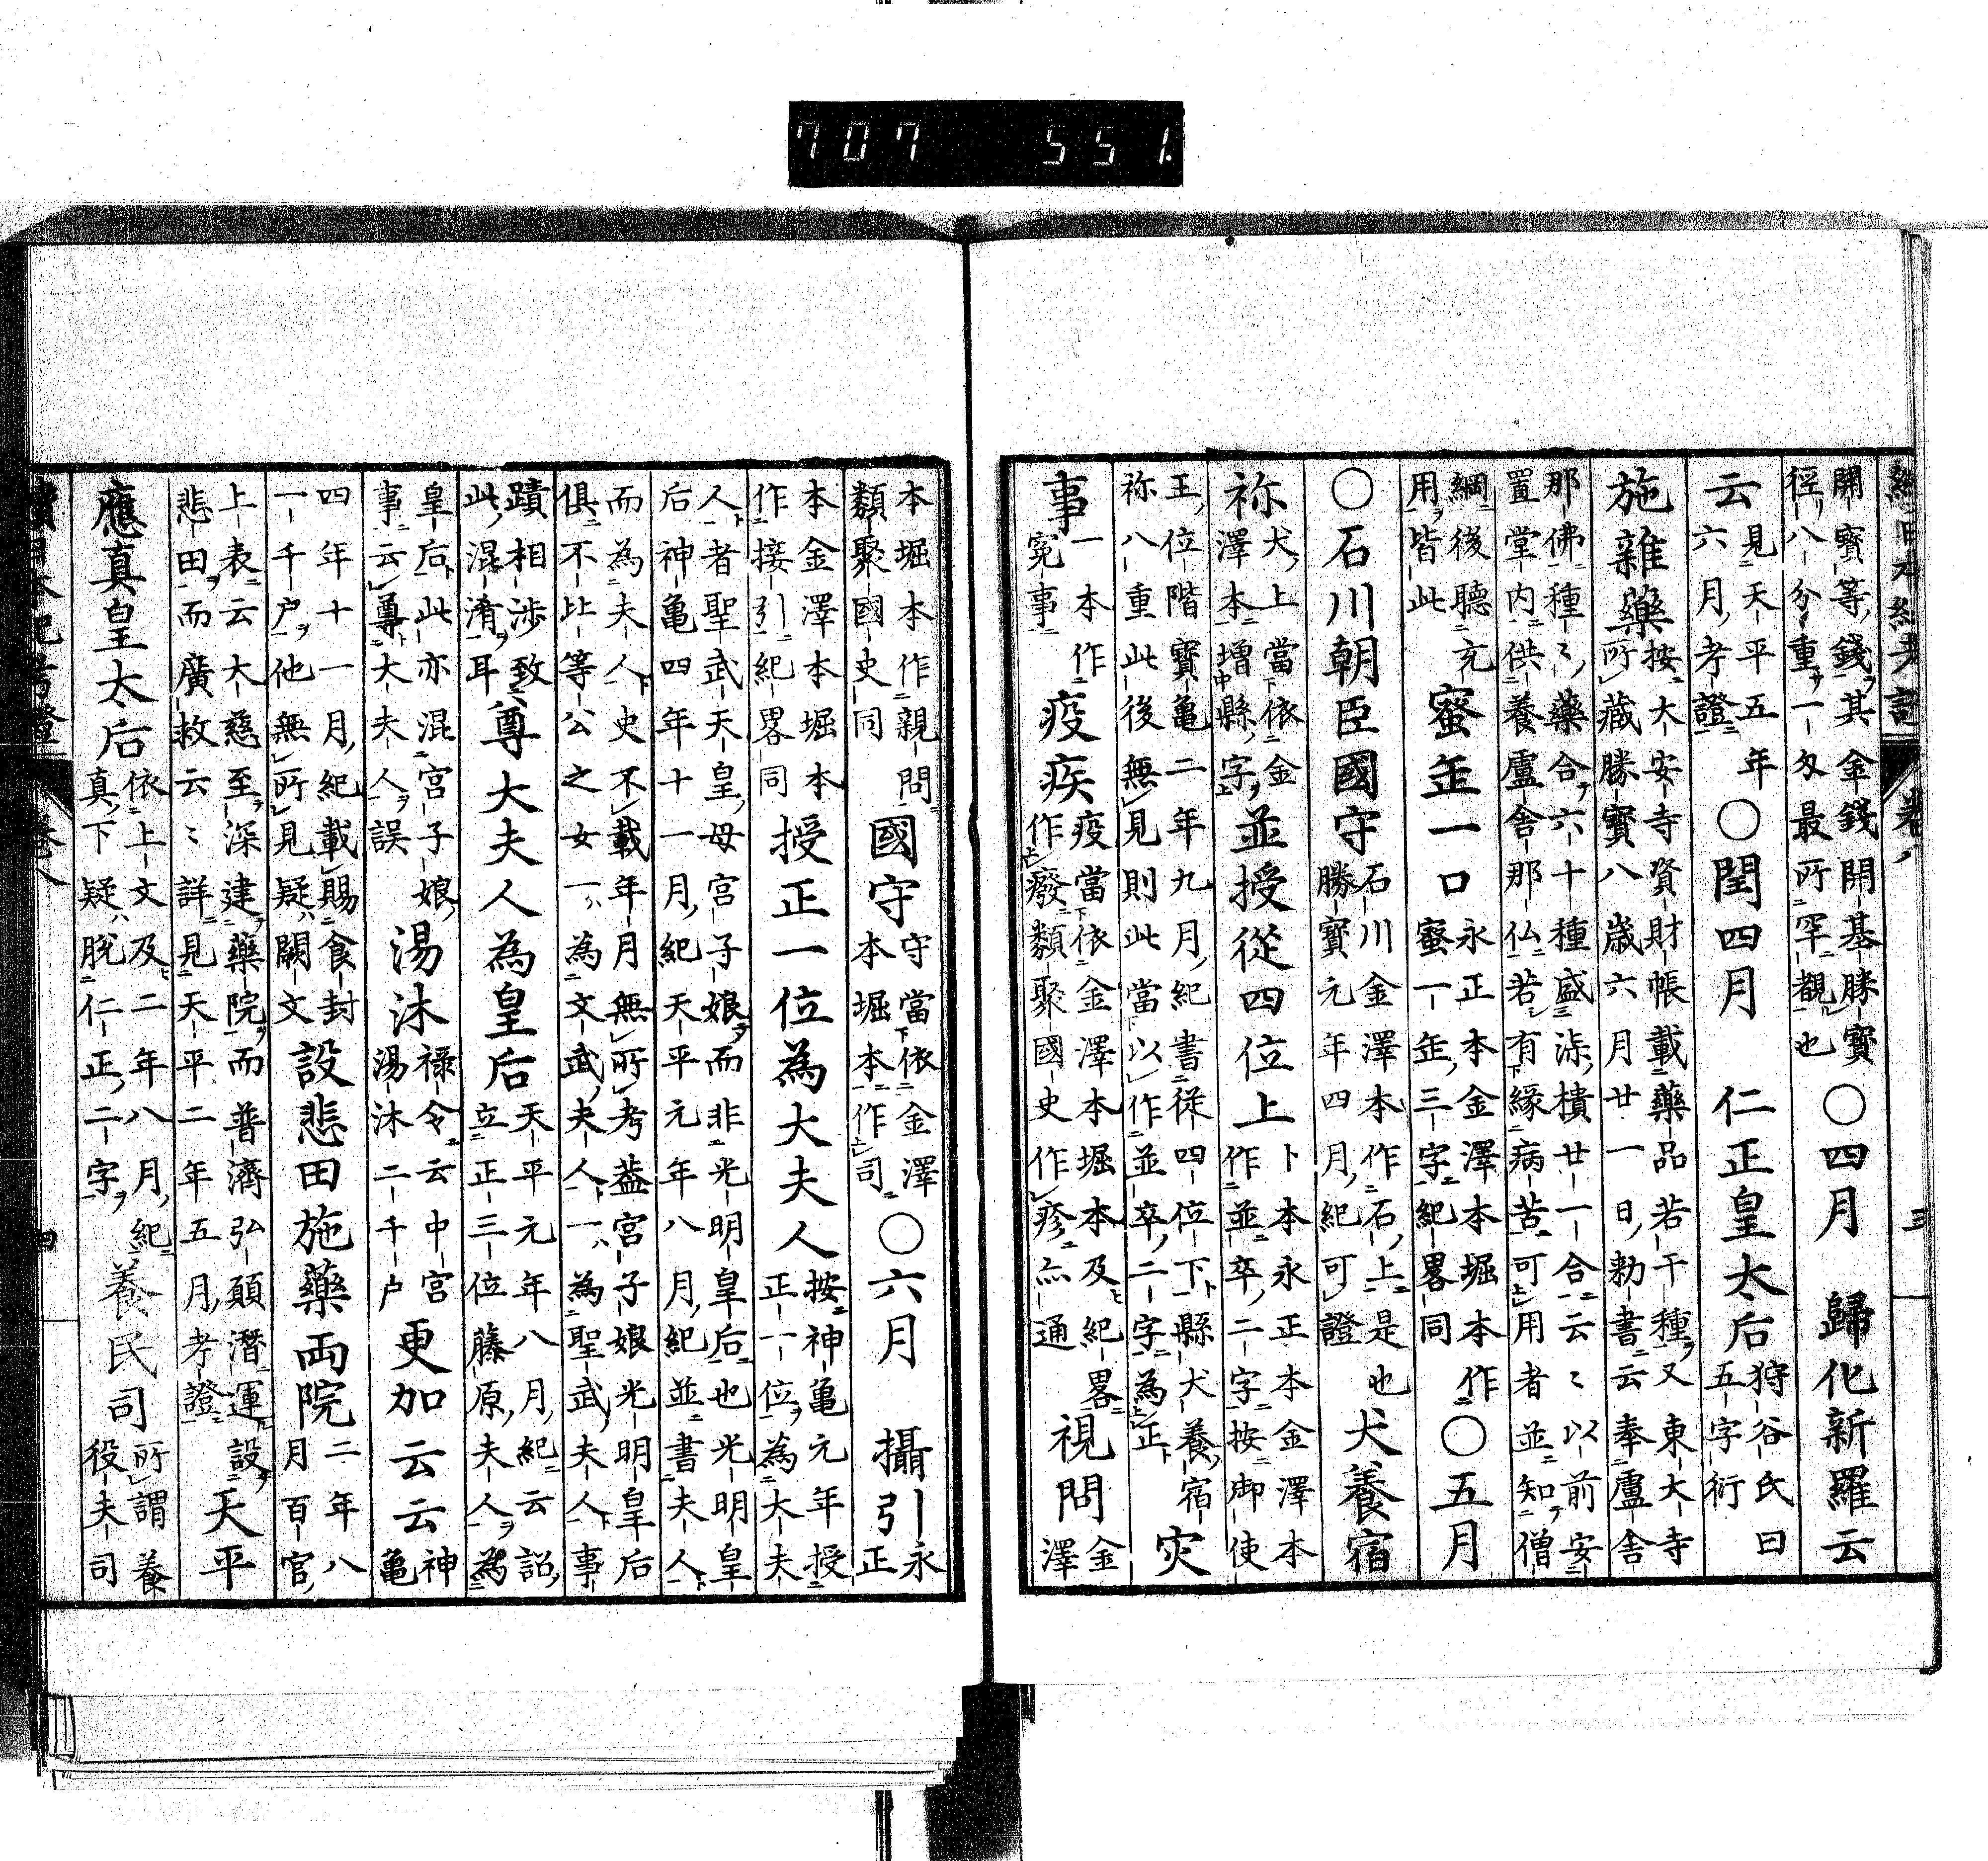 707 551.
續日本紀考證 卷八 三
開寶等錢其金錢開基勝寶
徑八分重一匁最所罕觀也
〇四月 歸化新羅云
云
見天平五年
六月考證
〇閏四月 仁正皇太后
狩谷氏曰
五字衍
施雜藥
按大安寺資財帳載藥品若干種又東大寺
所藏勝寶八歲六月廿一日勅書云奉盧舍
那佛種〻藥合六十種盛漆櫃廿一合云〻以前安
置堂內供養盧舍那仏若有緣病苦可用者並知僧
綱後聽充
用皆此
蜜缶一口
永正本金澤本堀本作
蜜一年缶三字紀畧同
〇五月
〇石川朝臣國守
石川金澤本作石上是也
勝寶元年四月紀可證
犬養宿
祢
犬上當依金
澤本增縣字
並授從四位上
卜本永正本金澤本
作並卒二字按御使
王位階寶亀二年九月紀書從四位下縣犬養宿
祢八重此後無見則此當以作並卒二字為正
灾
事
一本作
冤事
疫疾
疫當依金澤本堀本及紀畧
作癈類聚國史作疹亦通
視問
金
澤
本堀本作親問
類聚國史同
國守
守當依金澤
本堀本作司
〇六月 攝引
永
正
本金澤本堀本
作接引紀畧同
授正一位為大夫人
按神亀元年授
正一位為大夫
人者聖武天皇母宮子娘而非光明皇后也光明皇
后神亀四年十一月紀天平元年八月紀並書夫人
而為夫人史不載年月無所考蓋宮子娘光明皇后
俱不比等公之女一為文武夫人一為聖武夫人事
蹟相涉致
此混淆耳
尊大夫人為皇后
天平元年八月紀云詔
立正三位藤原夫人為
皇后此亦混宮子娘
事云尊大夫人誤
湯沐
祿令云中宮
湯沐二千户
更加云云
神
亀
四年十一月紀載賜食封
一千户他無所見疑闕文
設悲田施藥両院
二年八
月百官
上表云大慈至深建藥院而普濟弘願潛運設
悲田而廣救云〻詳見天平二年五月考證
天平
應真皇太后
依上文及二年八月紀
真下疑脫仁正二字
養民司
所謂養
役夫司
續日本紀考證 卷八 四